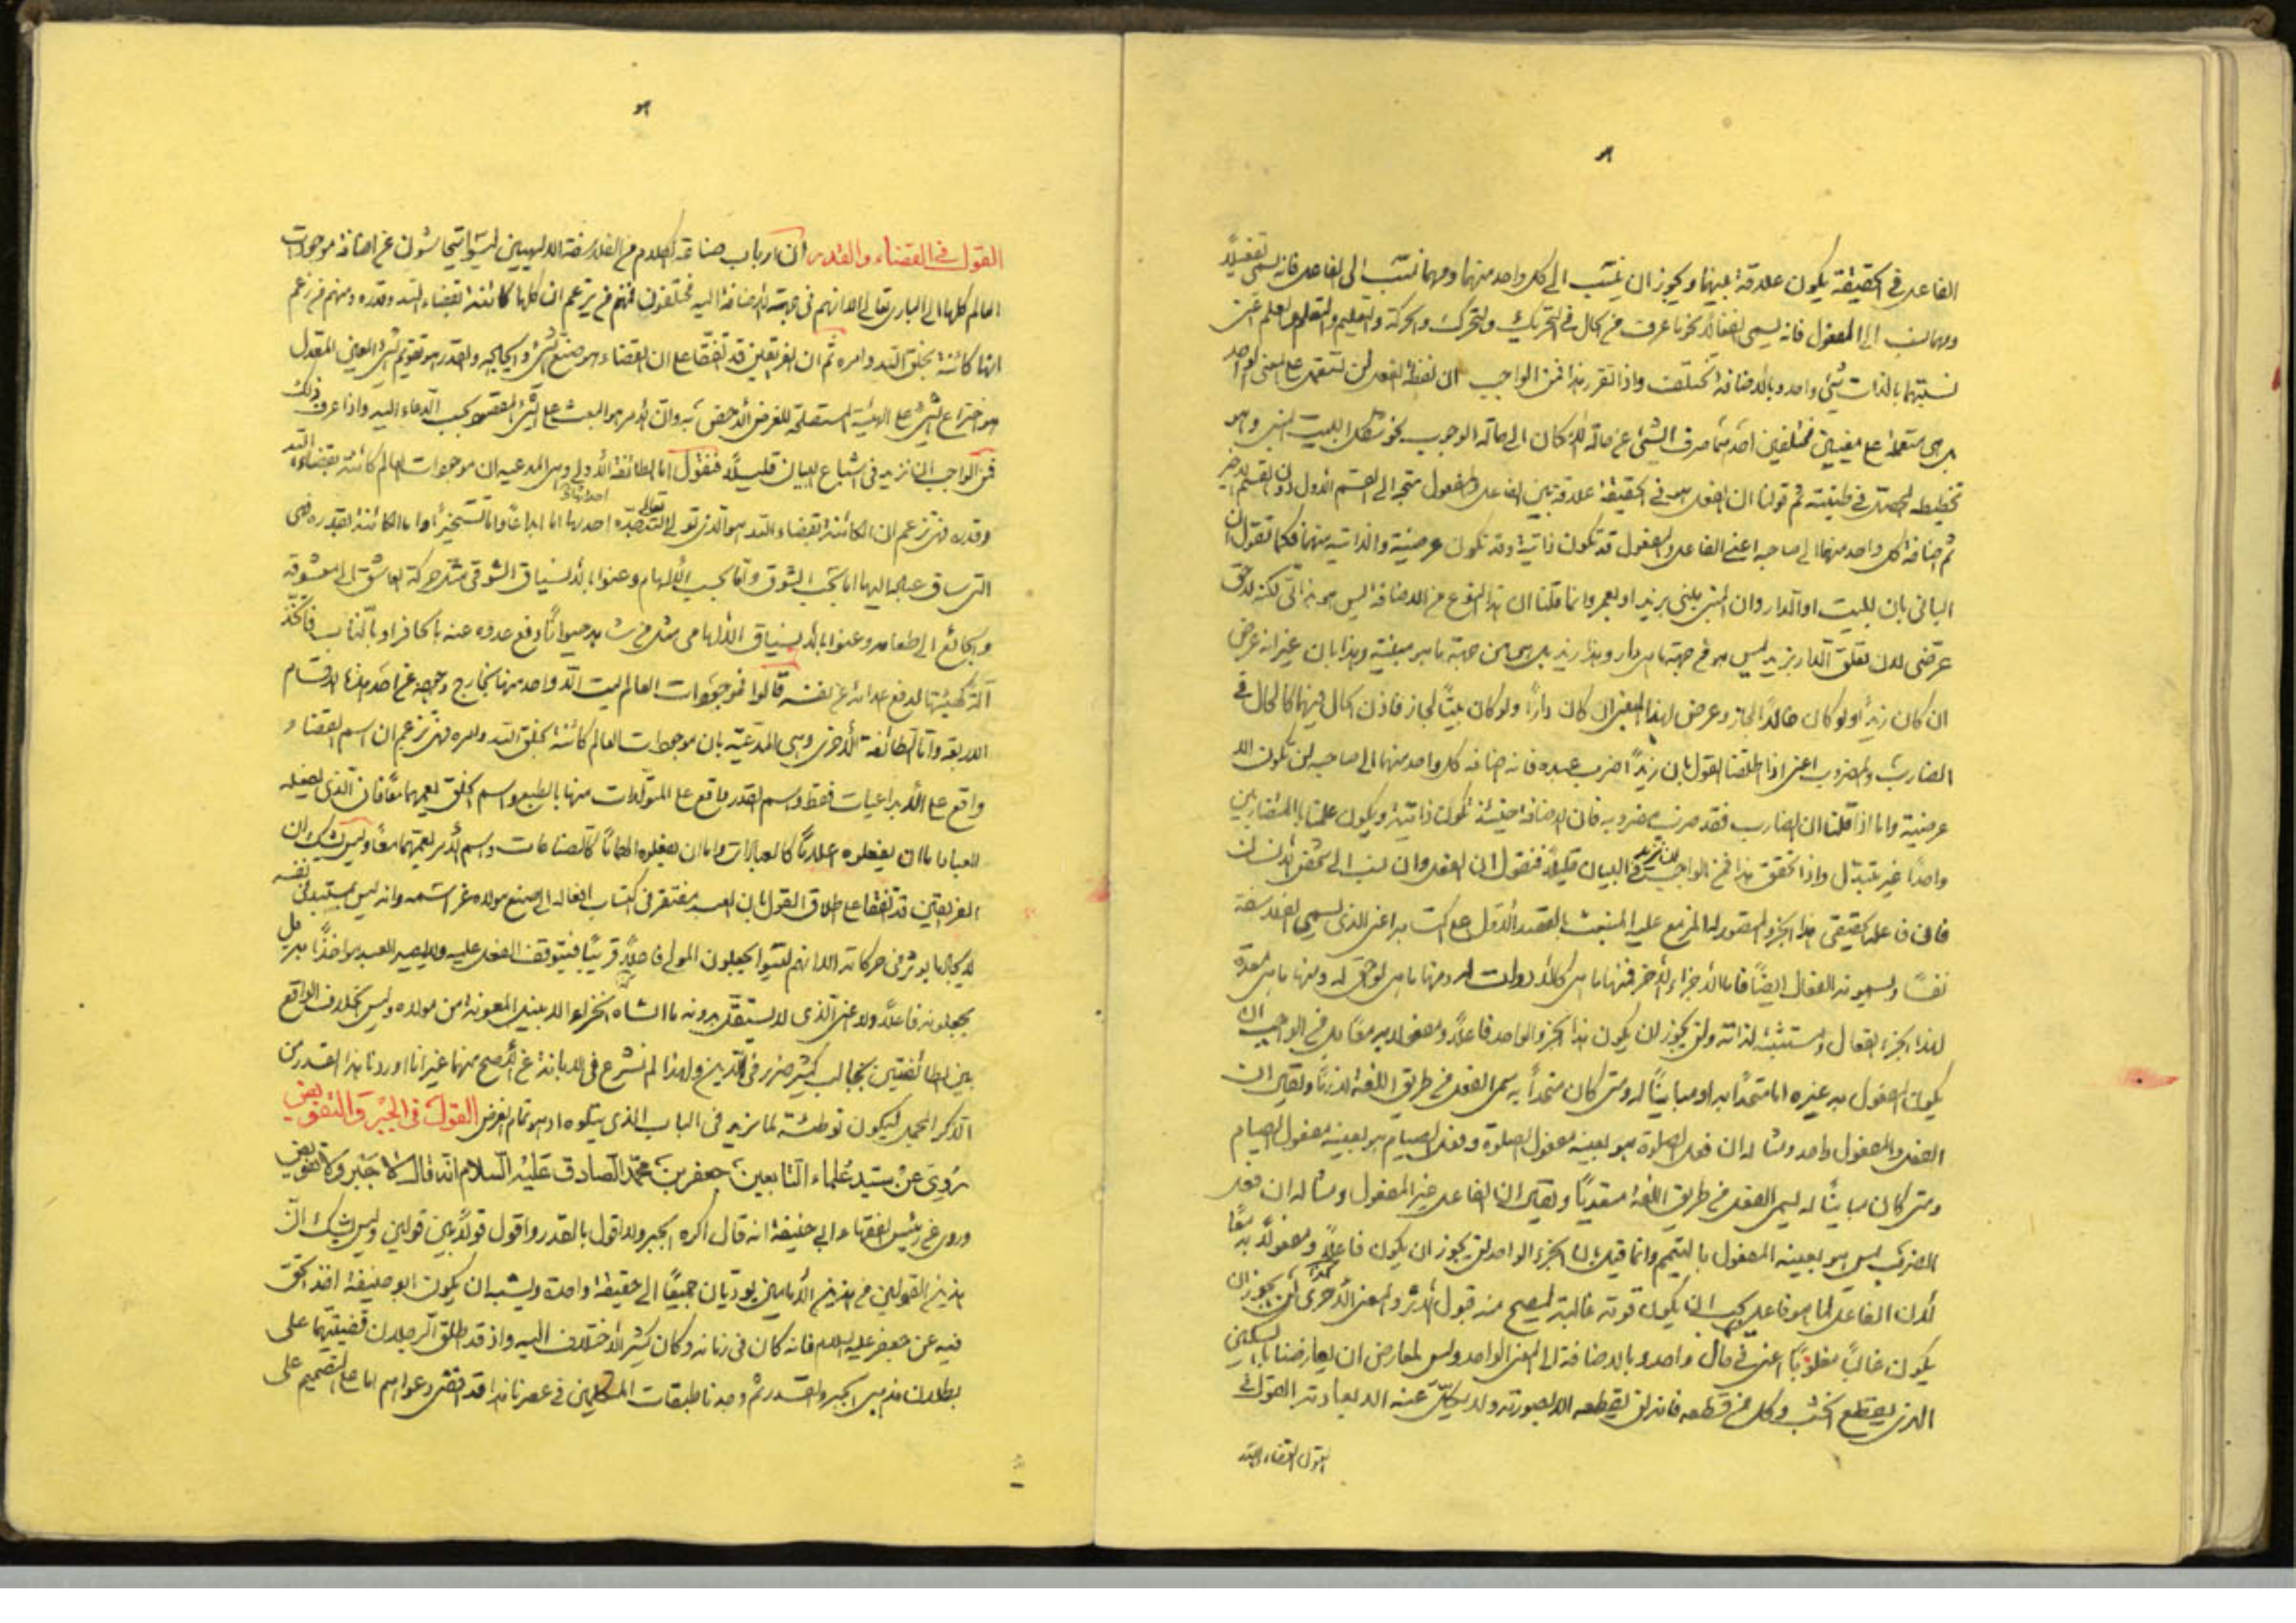 الفاعل في الحقيقة يكون علاقة بينهما ويجوز ان ينسب الى كل واحد منهما ومهما نسب الى الفاعل فانه يسمى تفعيلاً
ومهما نسب الى المفعول فانه يسمى انفعالا نحو ما عرف من الحال في التحريك والتحرك والحركة والتعليم والتعلم والعلم اعني
نسبتهما بالذات شيء واحد وبالاضافة تختلف واذا تقرر هذا فمن الواجب ان لفظة الفعل لن تستعمل على المعنى الواحد
بل هي مستعملة على معنيين مختلفين احدهما صرف الشيء عن حالة الامكان الى حالة الوجوب نحو شكل البيت المبني وهو
تخطيطه في طينته ثم قولنا ان الفعل هو في الحقيقة علاقة بين الفاعل والمفعول متجه الى القسم الاول دون القسم الاخير
ثم اضافة كل واحد منهما الى صاحبه اعني الفاعل والمفعول قد تكون ذاتية وقد تكون عرضية والذاتية منهما فكما تقول ان
الباني بان للبيت او الدار وان المبني بني بزيد او بعمرو وانما قلنا ان هذا النوع من الاضافة ليس هو بذاتي لكنه لاحق
عرضي لان تعلق الدار بزيد ليس هو من جهة ما هي دار وهذا زيد بل هي من جهة ما هو مبنية وهذا بان غير انه عرض
ان كان زيد او لو كان خالداً لجاز وعرض لهذا المبني ان كان داراً ولو كان بيتاً لجاز فاذن الحال فيهما كالحال في
الضارب والمضروب اعني اذا اطلقنا القول بان زيداً ضرب عبده فان اضافة كل واحد منهما الى صاحبه لن تكون الا
عرضية واما اذا قلنا ان الضارب فقد ضرب مضروبه فان الاضافة حينئذ تكون ذاتية ويكون علمنا بالمتضايفين
واحداً غير متبدل واذا تحقق هذا فمن الواجب ان نزيد في البيان قليلاً فنقول ان الفعل وان نسب الى شخص الانسان
فان فاعله الحقيقي هذا الجزء المقصور له المزمع عليه المنبعث بالقصد الاول على اكتسابه اعني الذي يسميه الفلاسفة
نفساً ويسمونه الفعال ايضاً فاما الاجزاء الاخر فمنها ما هي كالادوات له ومنها ما هي لواحق له ومنها ما هي معدة
لهذا الجزء الفعال ومستتبعة لذاته ولن يجوز ان يكون هذا الجزء الواحد فاعلاً ومفعولاً به معاً بل من الواجب ان
يكون المفعول به غيره اما متحداً به او مبايناً له ومتى كان متحداً به سمي الفعل من طريق اللغة لازماً ولقيل ان
الفعل والمفعول واحد ومثاله ان فعل الصلوة هو بعينه مفعول الصلوة وفعل الصيام هو بعينه مفعول الصيام
ومتى كان مبايناً له سمي الفعل من طريق اللغة متعدياً ولقيل ان الفاعل غير المفعول ومثاله ان فعل
الضرب ليس هو بعينه المفعول بالتيمم وانما قيل بان الجزء الواحد لن يجوز ان يكون فاعلاً ومفعولاً به معاً
لان الفاعل لما هو فاعل يجب ان يكون قوته غالبة ليصح منه قبول الاثر والمعنى الاحرى لن يجوز ان
يكون غالباً مغلوباً اعني في حال واحد وبالاضافة الى المعنى الواحد وليس لمعارض ان يعارضنا بالسكين
الذي يقطع الخشب وكل من قطعه فانه لن يقطعه الا بصورته ولا يكل عنه الا بمادته القول في
القول القضاء والقدر
القول في القضاء والقدر ان ارباب صناعة الكلام من الفلاسفة الالهيين ليسوا يتحاشون عن اضافة موجودات
العالم كلها الى الباري تعالى الا انهم في جهة الاضافة اليه مختلفون فمنهم من يزعم ان كلها كائنة بقضاء الله وقدره ومنهم من زعم
انها كائنة بخلق الله وامره ثم ان الفريقين قد اتفقا على ان القضاء هو صنع الشيء وايجابه والقدر هو تقويم الشيء المعدل
هو اختراع الشيء على الهيئة المستصلحة للغرض الاخص به وان الامر هو البعث على الشيء المقصود بحسب الدعاء اليه واذا عرف ذلك
فمن الواجب ان نزيد في اشباع البيان قليلاً فنقول اما الطائفة الاولى وهي المدعية ان موجودات العالم كائنة بقضاء الله
وقدره فهي تزعم ان الكائنة بقضاء الله هو الذي تولى الله تعالى احداثها اما ابداعاً واما تسخيراً واما الكائنة بقدره فهي
التي ساق عباده اليها اما بحسب الشوق واما بحسب الالهام وعنوا بالانسياق الشوقي مثل حركة العاشق الى معشوقه
والجائع الى طعامه وعنوا بالانسياق الالهامي مثل من شاهد حيواناً دفع عدوه عنه بالحافر او بالناب فاتخذ
آلة كهيئتها لدفع عدائه عن نفسه قالوا فموجودات العالم ليست الا واحد منها بخارج وجوهه عن احد هذه الاقسام
الاربعة واما الطائفة الاخرى وهي المدعية بان موجودات العالم كائنة بخلق الله وامره فهي تزعم ان اسم القضاء
واقع على الابداعيات فقط واسم القدر واقع على المتولدات منها بالطبع واسم الخلق يعمهما معاً فان الذي يفعله
العباد اما ان يفعلوه اعلاناً كالعبادات واما ان يفعلوه الهاماً كالصناعات واسم الامر يعمهما معاً وليس يشك ان
الفريقين قد اتفقا على اطلاق القول بان العبد مفتقر في اكتساب افعاله الى صنع مولاه عز اسمه وانه ليس بمستبد بنفسه
لايجاد ما يؤثر في حركاته الا انهم ليسوا يجعلون المولى فاعلاً قريباً فيتوقف الفعل عليه ولا يصير العبد مؤاخذاً به بل
يجعلونه فاعلاً ولا عن الذي لا يستقل بدونه ما انشاه الا بنيل المعونة من مولاه وليس الخلاف الواقع
بين الطائفتين بجالب كثير ضرر في الدين ولهذا لم نشرع في الابانة عن الاصح منهما غير انا اوردنا هذا القدر من
الذكر المجمل ليكون توطئة لما نريد في الباب الذي يتلوه اذ هو تمام الغرض القول في الجبر والتفويض
روي عن سيد علماء التابعين جعفر بن محمد الصادق عليه السلام انه قال لا جبر ولا تفويض
وروي عن رئيس الفقهاء ابي حنيفة انه قال اكره الجبر ولا اقول بالقدر واقول قولاً بين قولين وليس يشك ان
هذين القولين من هذين الامامين يؤديان جميعاً الى حقيقة واحدة ويشبه ان يكون ابو حنيفة اخذ الحق
فيه عن جعفر عليه السلام فانه كان في زمانه وكان كثير الاختلاف اليه واذ قد اطلق الرجلان قضيتهما على
بطلان مذهبي الجبر والقدر ثم وجدنا طبقات المتكلمين في عصرنا هذا قد افتن دعواهم اما على التصميم على